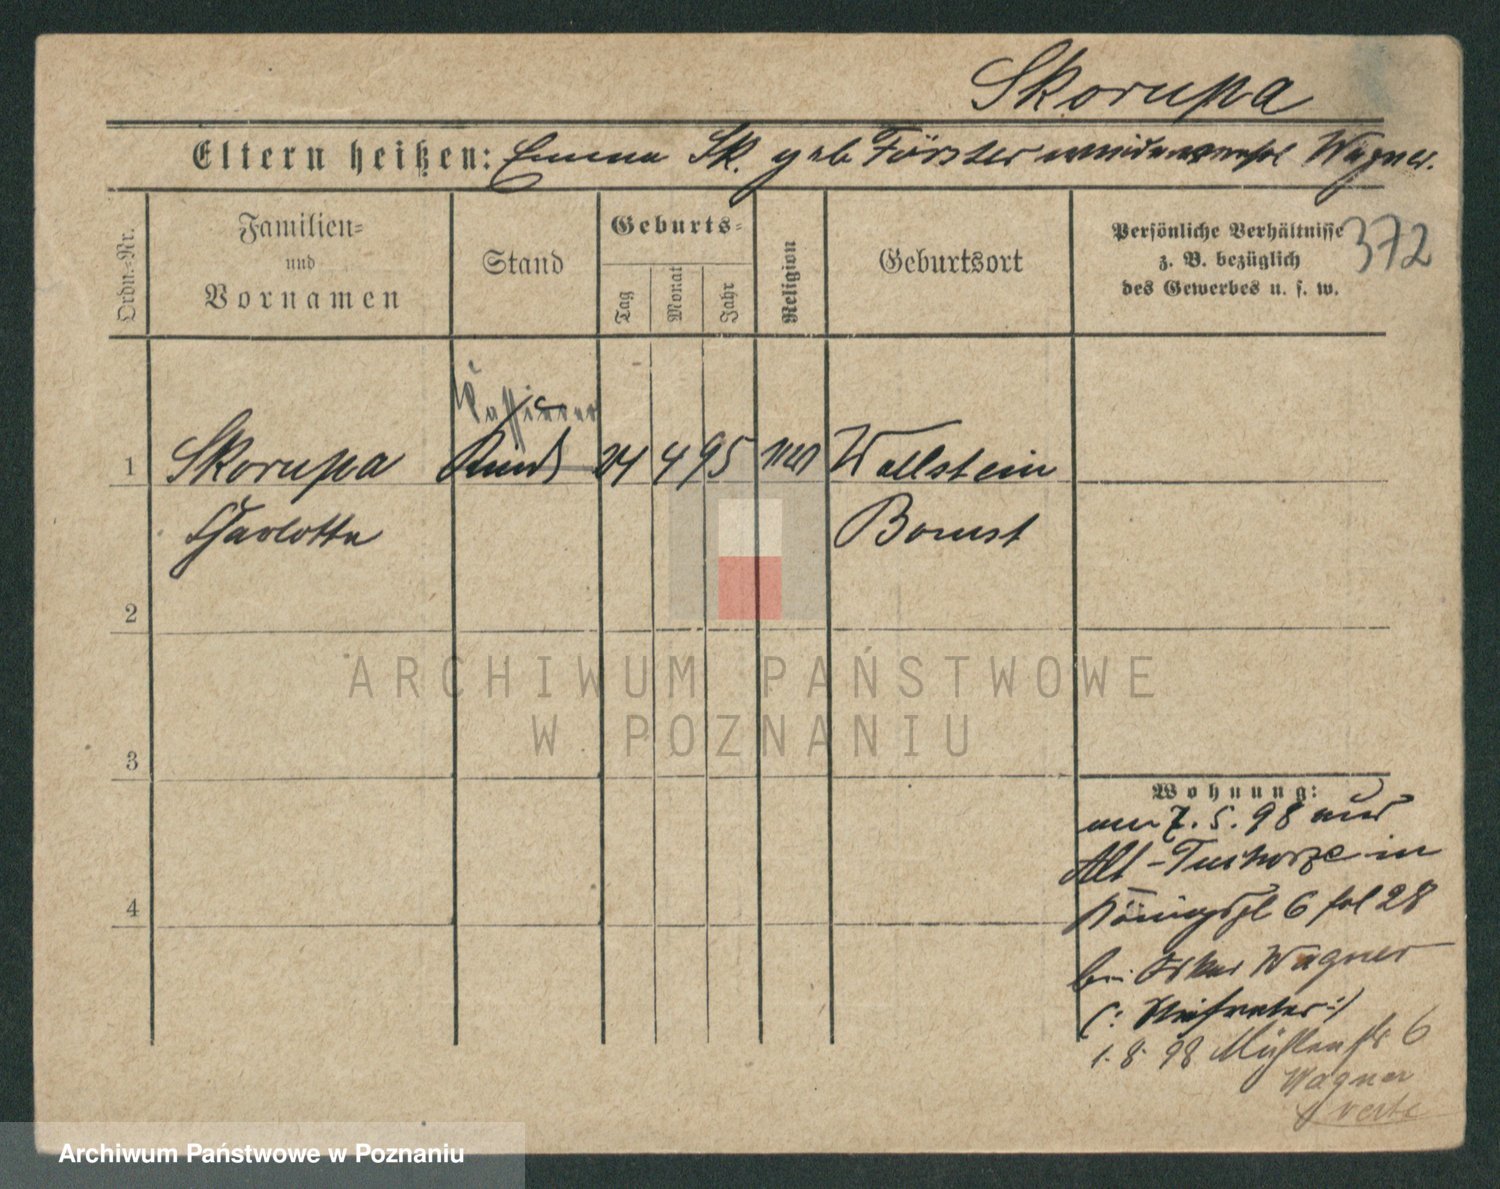 Skorupa
Eltern heißen: Emma Sk. geb Förster Wagner.
372
Ordn.-Nr.
Familien-
und
Vornamen
Stand
Geburts-
Tag
Monat
Jahr
Religion
Geburtsort
Persönliche Verhältnisse
z. B. bezüglich
des Gewerbes u. s. w.
1
Skorupa
Kind
24
4
95
Wollstein
Charlotte
Bomst
2
ARCHIWUM PAŃSTWOWE
W POZNANIU
3
Wohnung:
am 7. 5. 98 aus
Alt-Tuchorze in
Königspl 6 fol 28
bei Oskar Wagner
(: Stiefvater :)
1. 8. 98 Mühlenstr 6
Wagner
verte
4
Archiwum Państwowe w Poznaniu